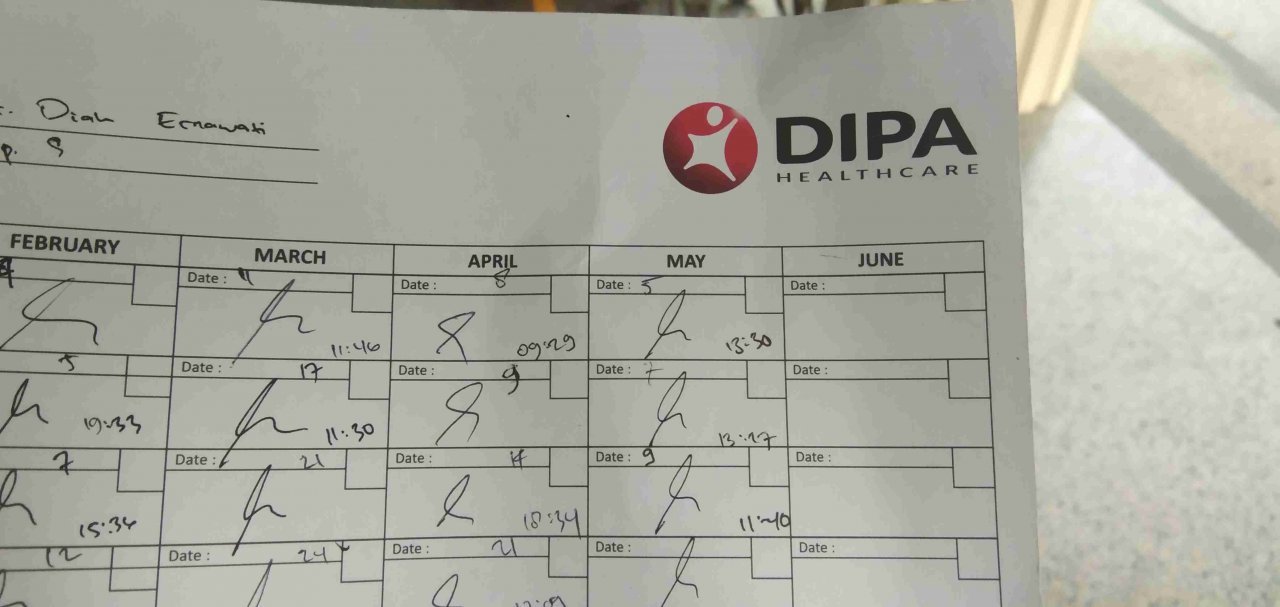 Diah Ernawati
p. S
DIPA
HEALTHCARE
FEBRUARY MARCH APRIL MAY JUNE
Date : Date : 8 Date : 5 Date :
11:46 09:29 13:30
5 Date : 17 Date : 9 Date : 7 Date :
19:33 11:30 13:27
7 Date : 21 Date : Date : 9 Date :
15:34 18:34 11:40
12 Date : 24 Date : 21 Date : Date :